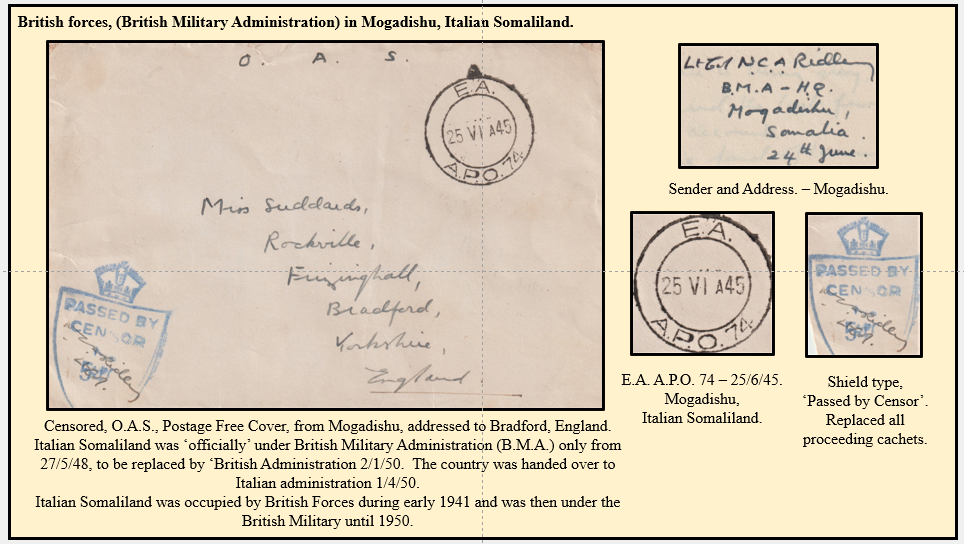 British forces, (British Military Administration) in Mogadishu, Italian Somaliland.
O. A. S.
E.A.
25 VI A45
A.P.O. 74
Miss Suddards,
Rockville,
Frizinghall,
Bradford,
Yorkshire,
England
PASSED BY
CENSOR
Ridley
Censored, O.A.S., Postage Free Cover, from Mogadishu, addressed to Bradford, England.
Italian Somaliland was ‘officially’ under British Military Administration (B.M.A.) only from
27/5/48, to be replaced by ‘British Administration 2/1/50. The country was handed over to
Italian administration 1/4/50.
Italian Somaliland was occupied by British Forces during early 1941 and was then under the
British Military until 1950.
N C A Ridley
B.M.A - H.Q.
Mogadishu,
Somalia.
24th June.
Sender and Address. – Mogadishu.
E.A.
25 VI A45
A.P.O. 74
E.A. A.P.O. 74 – 25/6/45.
Mogadishu,
Italian Somaliland.
PASSED BY
CENSOR
Ridley
Shield type,
‘Passed by Censor’.
Replaced all
proceeding cachets.